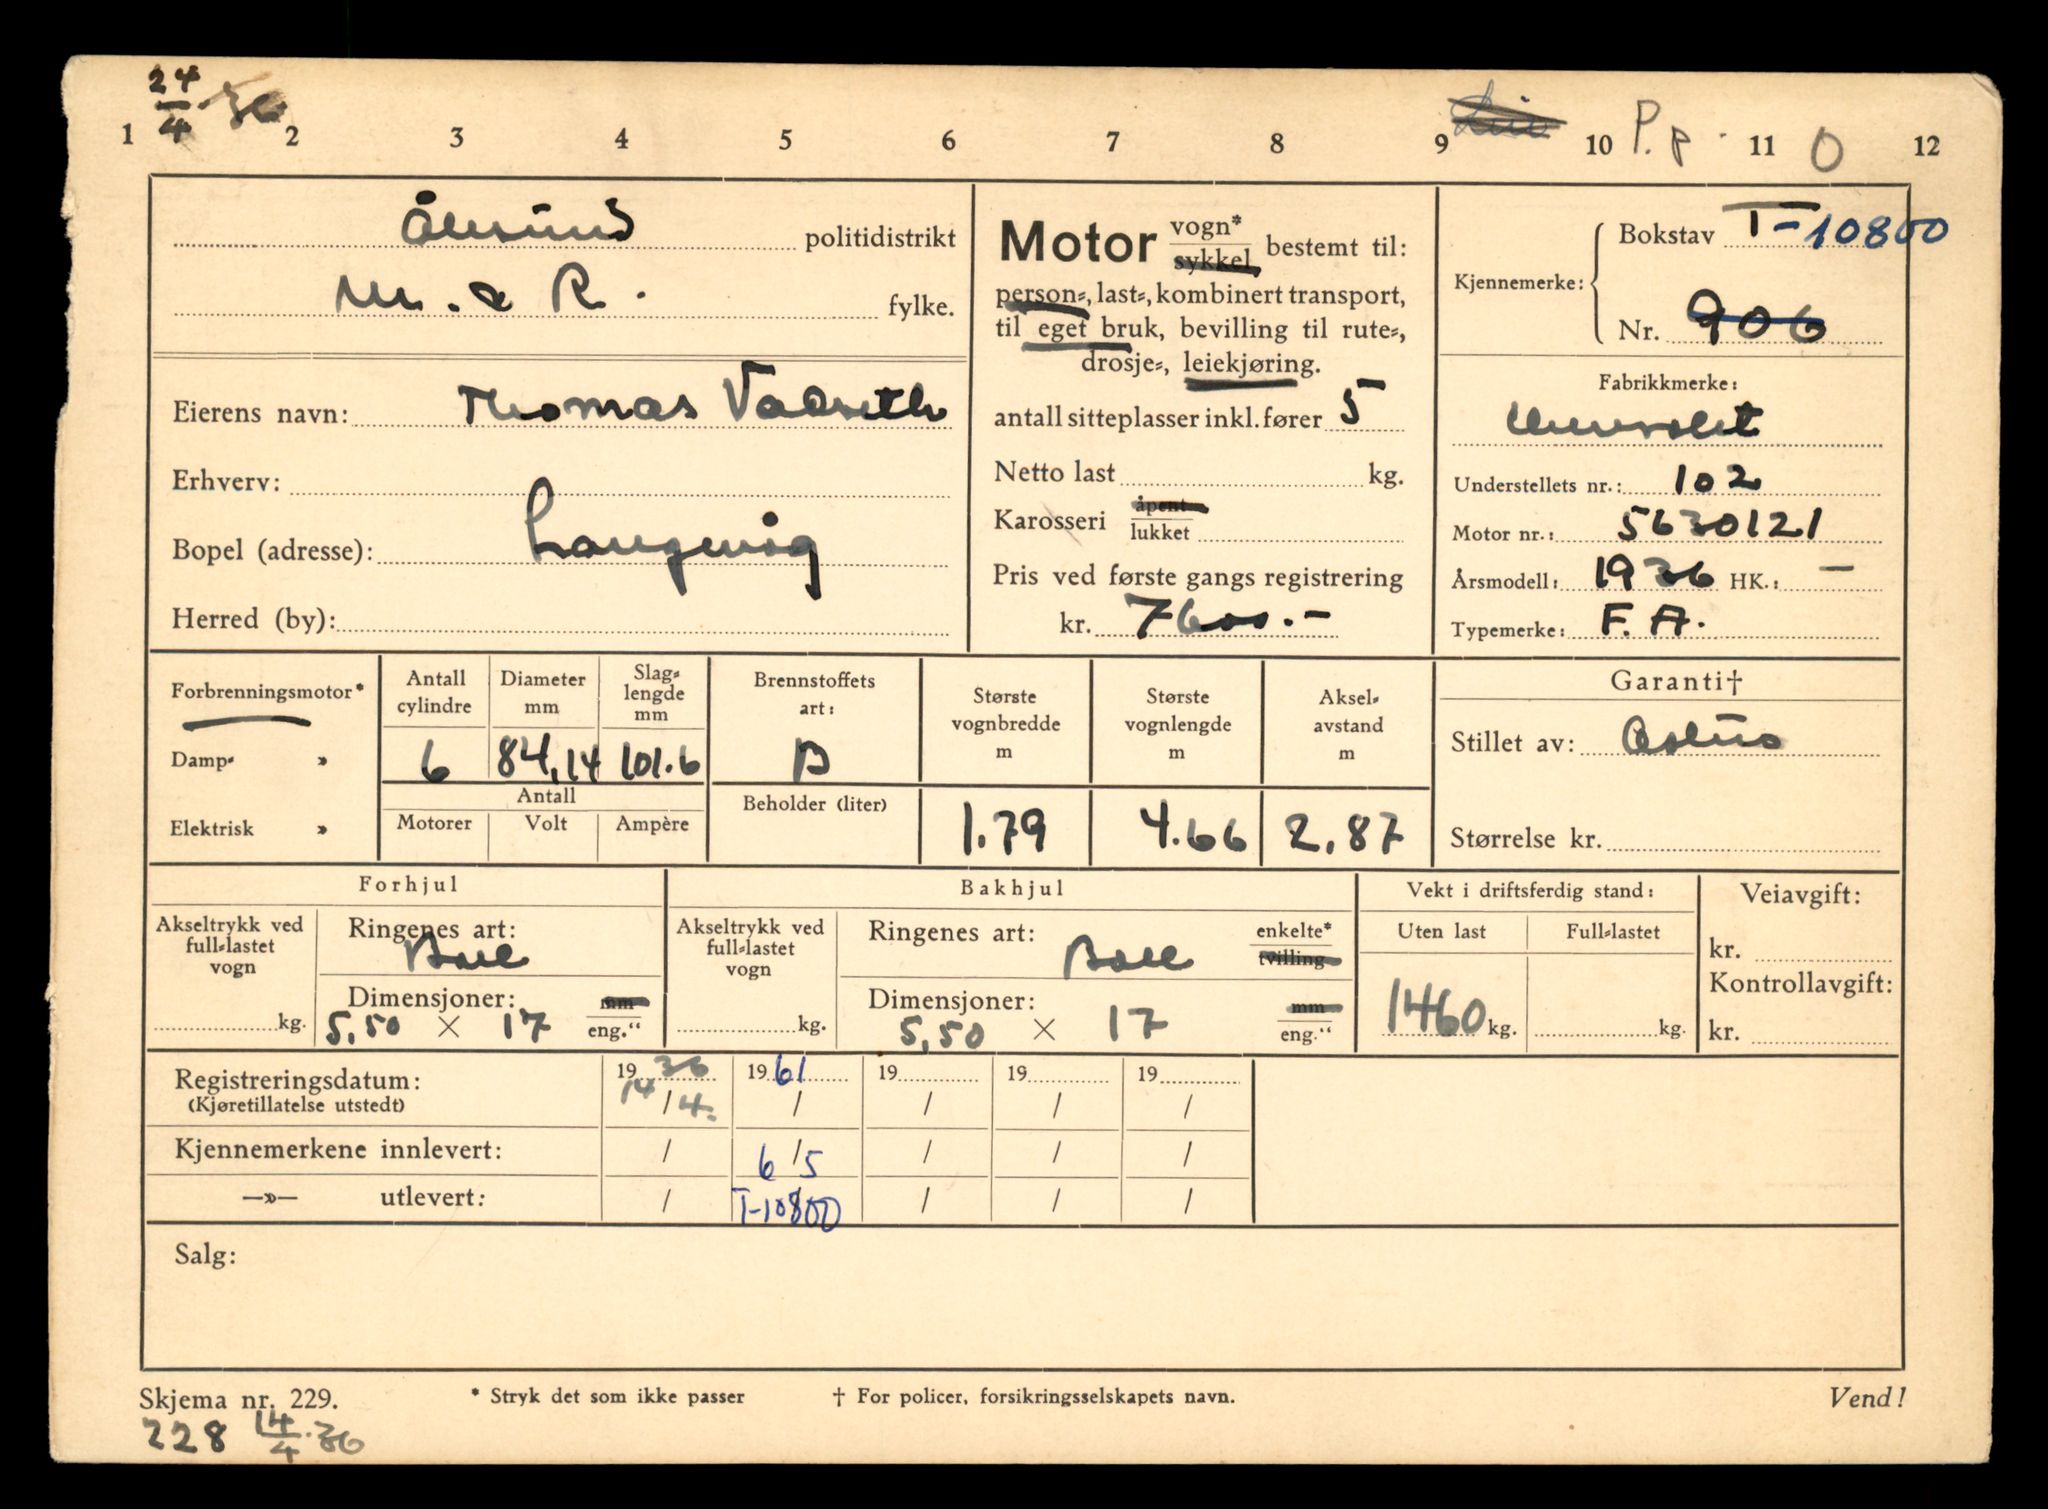 24/4.36
1 2 3 4 5 6 7 8 9 10 P.p. 11 0 12
Ålesund politidistrikt
M. & R. fylke.
Eierens navn: Thomas Vadseth
Erhverv:
Bopel (adresse): Langevåg
Herred (by):
Motor vogn* / sykkel bestemt til:
person=, last=, kombinert transport,
til eget bruk, bevilling til rute=,
drosje=, leiekjøring.
antall sitteplasser inkl. fører 5
Netto last kg.
Karosseri åpent / lukket
Pris ved første gangs registrering
kr. 7600.-
Kjennemerke:
Bokstav T-10800
Nr. 906
Fabrikkmerke:
Chevrolet
Understellets nr.: 102
Motor nr.: 5630121
Årsmodell: 1936 HK.: -
Typemerke: F.A.
Forbrenningsmotor*
Damp= »
Elektrisk »
Antall cylindre
6
Diameter mm
84,14
Slag=lengde mm
101.6
Antall
Motorer Volt Ampère
Brennstoffets art:
B
Beholder (liter)
Største vognbredde m
1.79
Største vognlengde m
4.66
Aksel=avstand m
2,87
Garanti†
Stillet av:
Størrelse kr.
Forhjul
Akseltrykk ved full=lastet vogn
kg.
Ringenes art:
Ball
Dimensjoner: mm
5,50 × 17 eng."
Bakhjul
Akseltrykk ved full=lastet vogn
kg.
Ringenes art: enkelte*
Ball tvilling
Dimensjoner: mm
5,50 × 17 eng."
Vekt i driftsferdig stand:
Uten last Full=lastet
1460 kg. kg.
Veiavgift:
kr.
Kontrollavgift:
kr.
Registreringsdatum: 1936 1961 19 19 19
(Kjøretillatelse utstedt) 14/4. / / / /
Kjennemerkene innlevert: / 6/5 / / /
—»— utlevert: / T-10800 / / /
Salg:
Skjema nr. 229. * Stryk det som ikke passer † For policer, forsikringsselskapets navn. Vend!
228 14/4.36